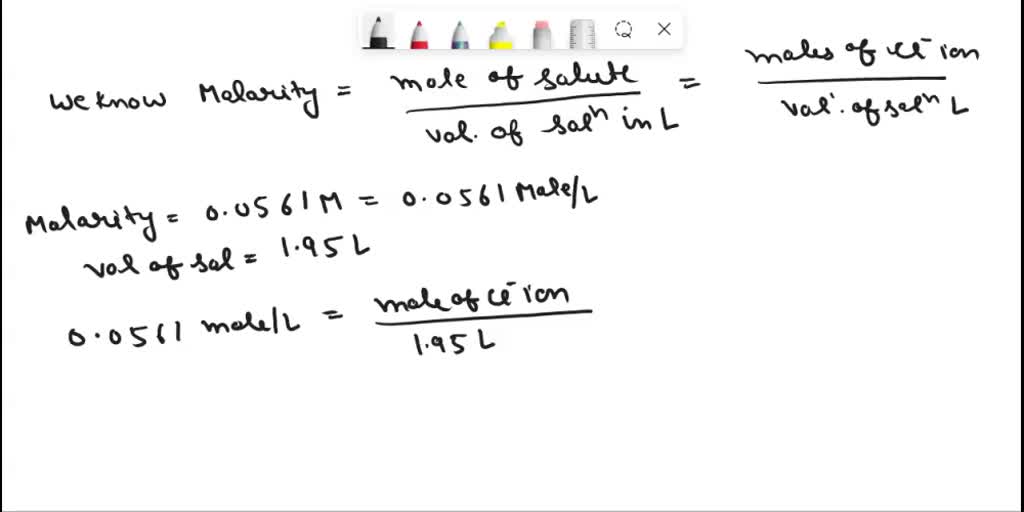 We know Molarity = mole of solute / vol. of solⁿ in L = moles of Cl⁻ ion / vol. of solⁿ L
Molarity = 0.0561 M = 0.0561 Mole/L
vol of sol = 1.95 L
0.0561 mole/L = mole of Cl⁻ ion / 1.95 L